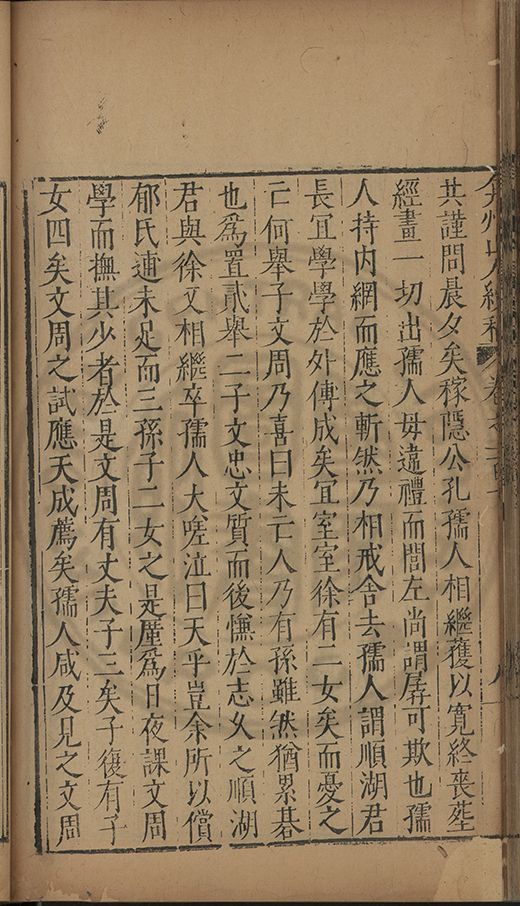 弇州山人續稿 卷之一百十 八
其謹問晨夕矣稼隱公孔孺人相繼獲以寬終喪塟
經畫一切出孺人毋違禮而閭左尚謂孱可欺也孺
人持内綱而應之斬然乃相戒舍去孺人謂順湖君
長宜學學於外傳成矣宜室室徐有二女矣而憂之
亡何舉子文周乃喜曰未亡人乃有孫雖然猶累碁
也爲置貳舉二子文忠文質而後慊於志久之順湖
君與徐又相繼卒孺人大嗟泣曰天乎豈余所以償
郁氏逋未足而三孫子二女之是廑爲日夜課文周
學而撫其少者於是文周有丈夫子三矣子復有子
女四矣文周之試應天成薦矣孺人咸及見之文周